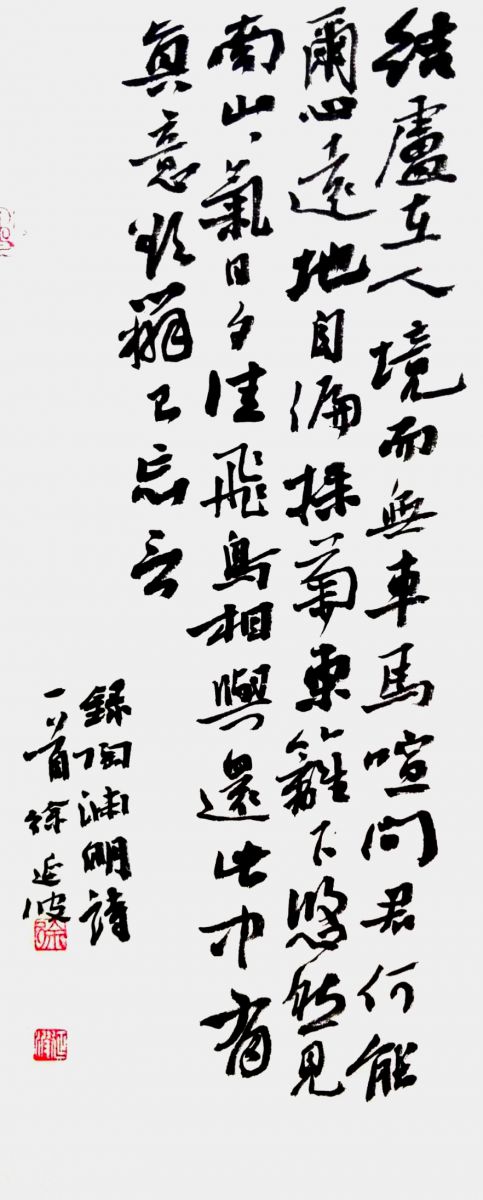 結盧在人境而無車馬喧問君何能
爾心遠地自偏採菊東籬下悠然見
南山丶氣日夕佳飛鳥相與還此中有
真意欲辯已忘言
錄陶淵明詩
一首徐延波
徐
延波